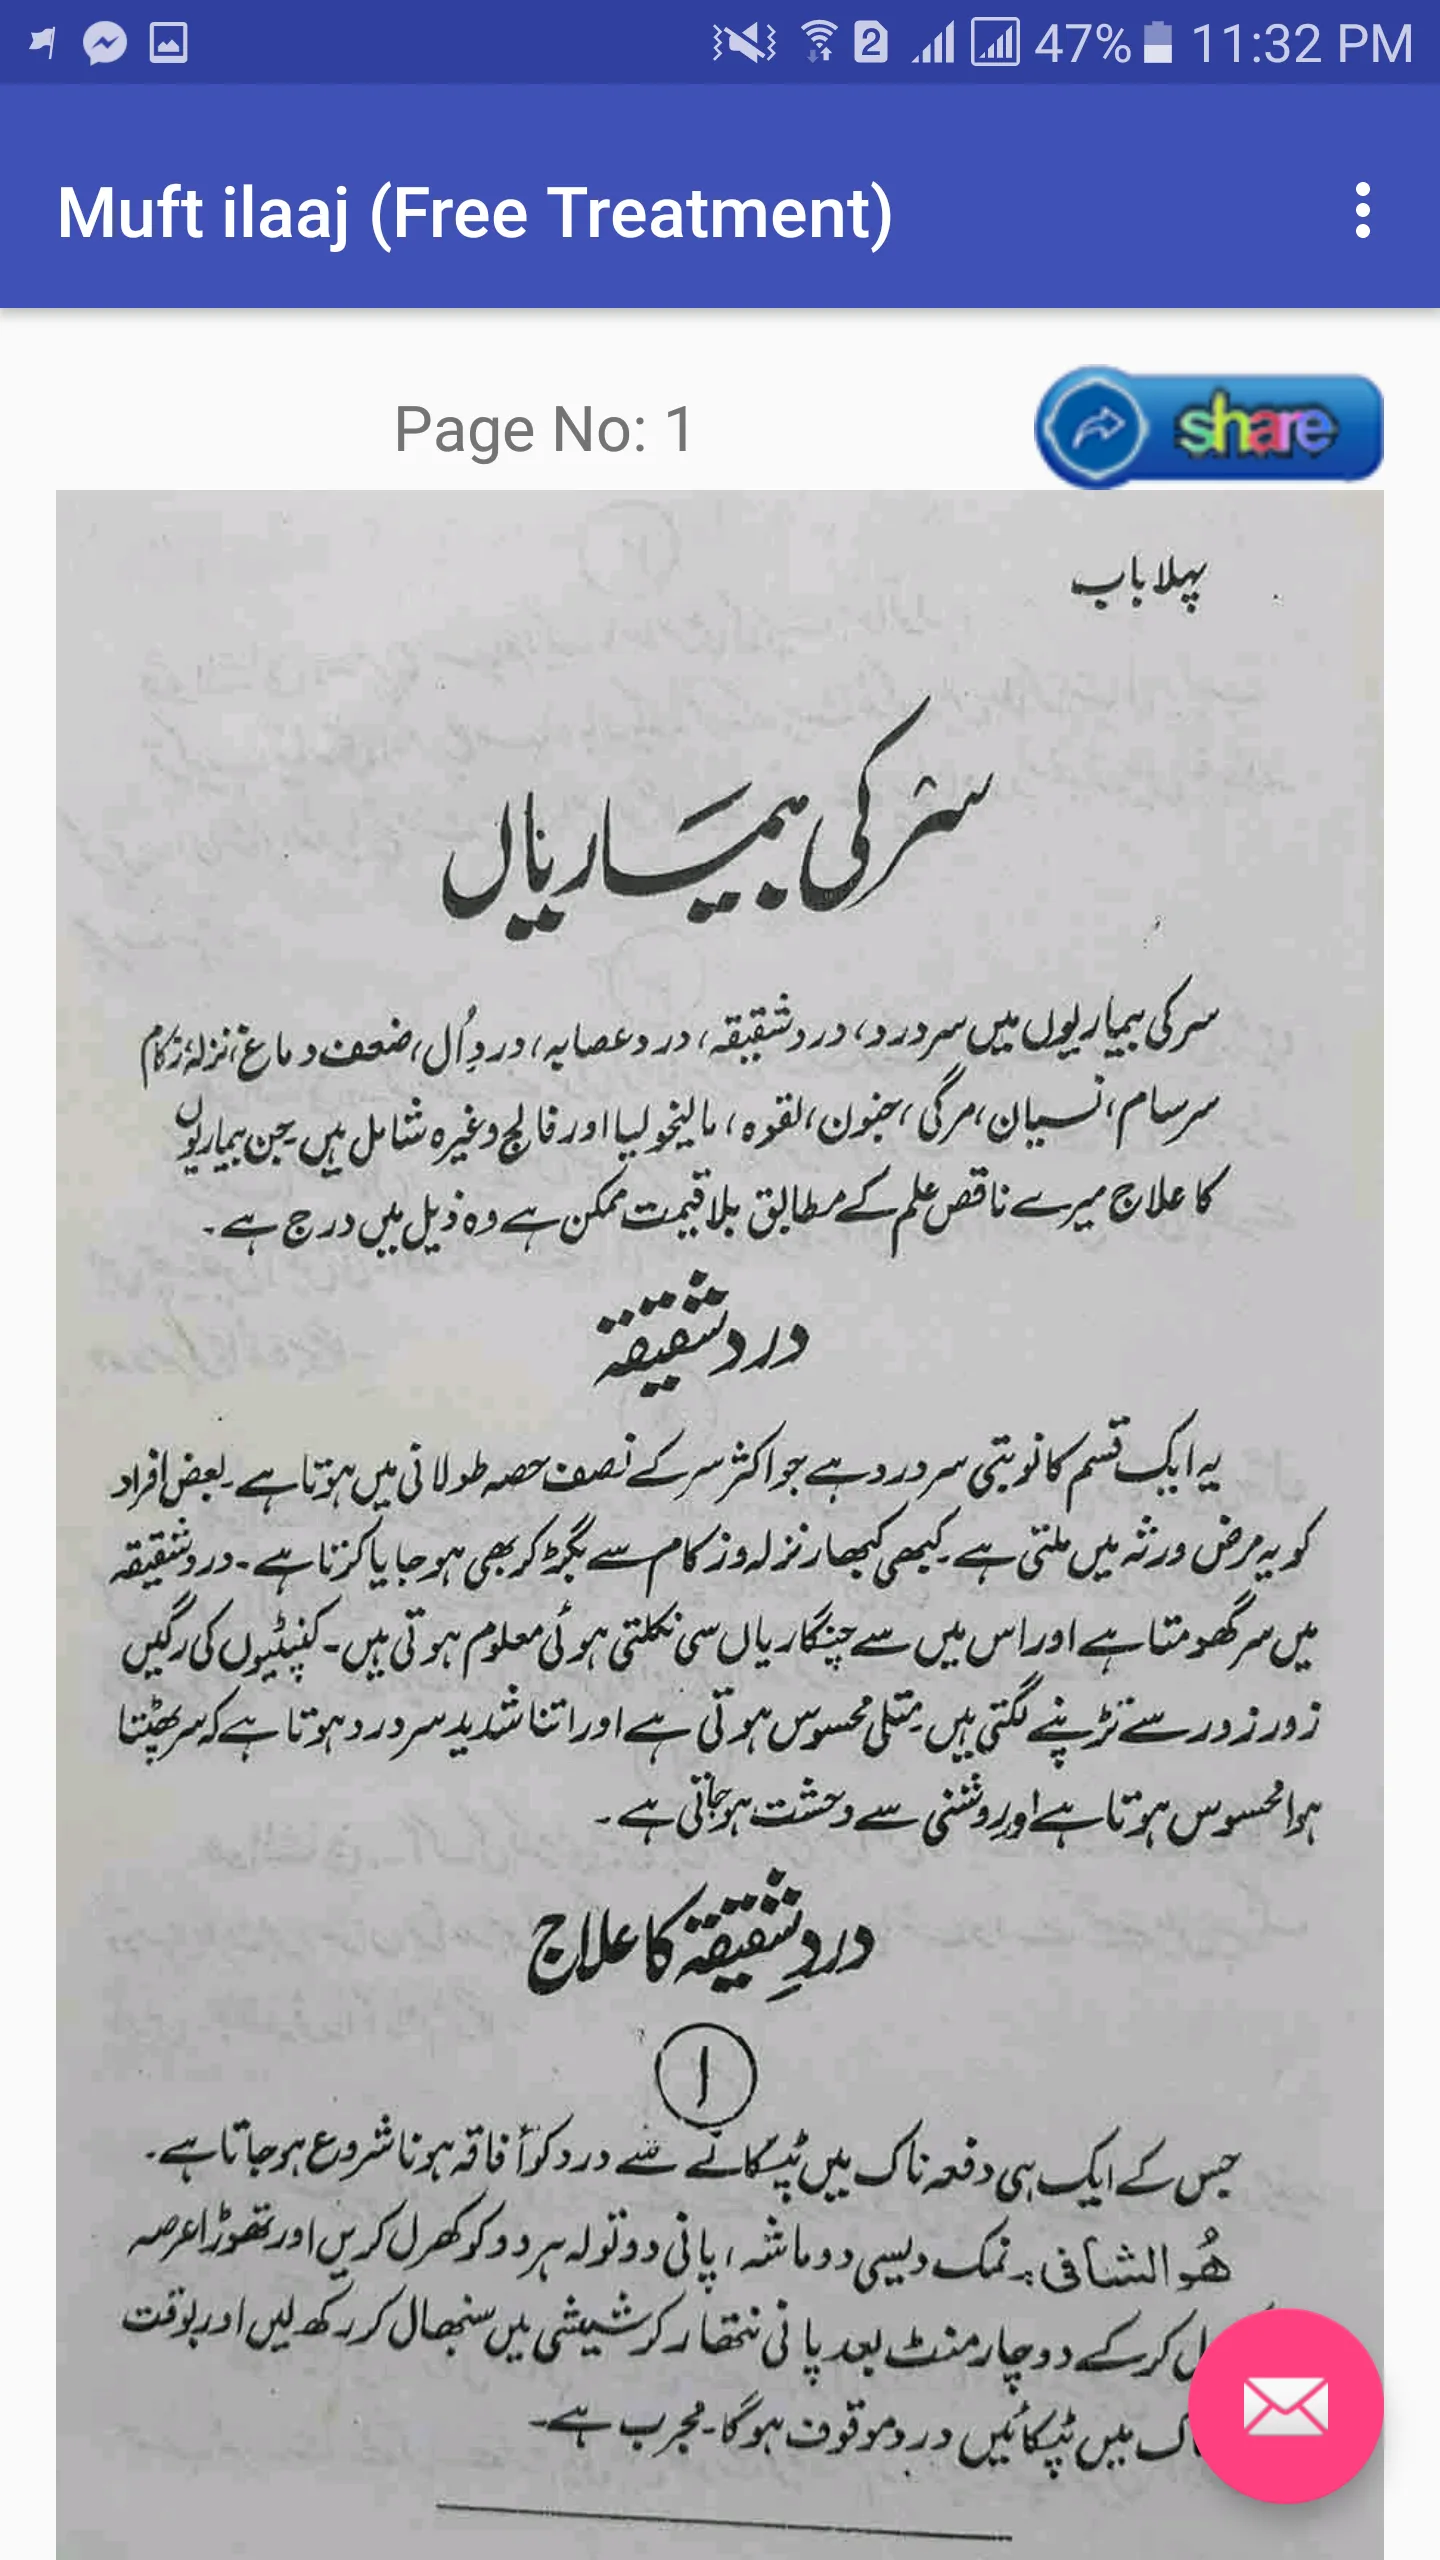 47% 11:32 PM
Muft ilaaj (Free Treatment)
Page No: 1
share
پہلا باب
سر کی بیماریاں
سر کی بیماریوں میں سردرد، درد شقیقہ، درد عصابہ، دردِ اُل، ضعف دماغ، نزلہ زکام
سرسام، نسیان، مرگی، جنون، لقوہ، مالیخولیا اور فالج وغیرہ شامل ہیں جن بیماریوں
کا علاج میرے ناقص علم کے مطابق بلا قیمت ممکن ہے وہ ذیل میں درج ہے۔
درد شقیقہ
یہ ایک قسم کا نوبتی سردرد ہے جو اکثر سر کے نصف حصہ طولانی میں ہوتا ہے۔ بعض افراد
کو یہ مرض ورثہ میں ملتی ہے۔ کبھی کبھار نزلہ و زکام سے بگڑ کر بھی ہو جایا کرتا ہے۔ درد شقیقہ
میں سر گھومتا ہے اور اس میں سے چنگاریاں سی نکلتی ہوئی معلوم ہوتی ہیں۔ کنپٹیوں کی رگیں
زور زور سے تڑپنے لگتی ہیں۔ متلی محسوس ہوتی ہے اور اتنا شدید سردرد ہوتا ہے کہ سر پھٹتا
ہوا محسوس ہوتا ہے اور روشنی سے وحشت ہو جاتی ہے۔
دردِ شقیقہ کا علاج
۱
جس کے ایک ہی دفعہ ناک میں ٹپکانے سے درد کو أفاقہ ہونا شروع ہو جاتا ہے۔
ھُوالشافی :۔ نمک دیسی دو ماشہ، پانی دو تولہ ہر دو کو کھرل کریں اور تھوڑا عرصہ
کر کے دو چار منٹ بعد پانی نتھار کر شیشی میں سنبھال کر رکھ لیں اور بوقت
میں ٹپکائیں درد موقوف ہوگا۔ مجرب ہے۔